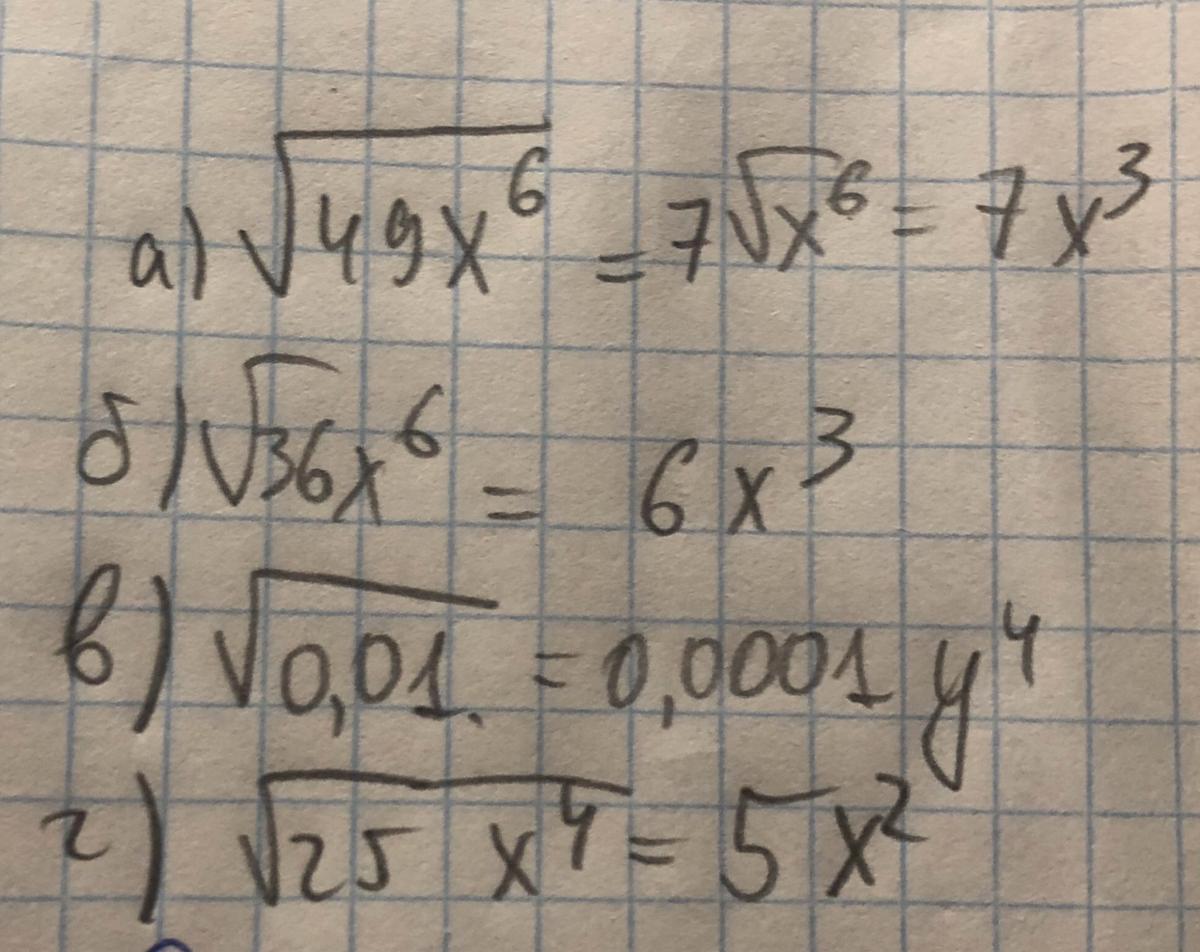 а) √49x⁶ = 7√x⁶ = 7x³
б) √36x⁶ = 6x³
в) √0,01. = 0,0001 y⁴
г) √25 x⁴ = 5x²